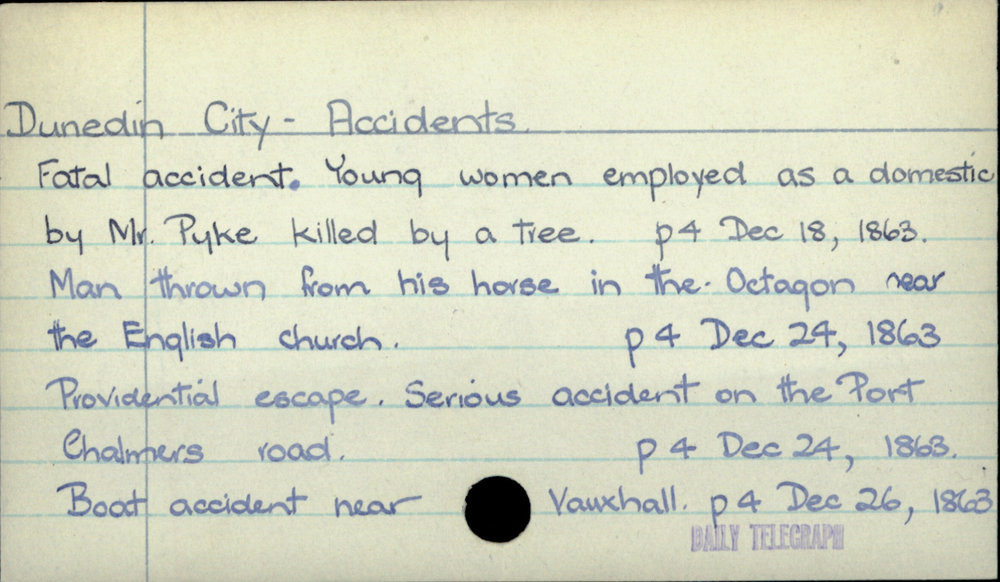 Dunedin City - Accidents.
Fatal accident. Young women employed as a domestic
by Mr. Pyke killed by a tree. p4 Dec 18, 1863.
Man thrown from his horse in the. Octagon near
the English church. p 4 Dec 24, 1863
Providential escape. Serious accident on the Port
Chalmers road. p 4 Dec 24, 1863.
Boat accident near Vauxhall. p 4 Dec 26, 1863
DAILY TELEGRAPH